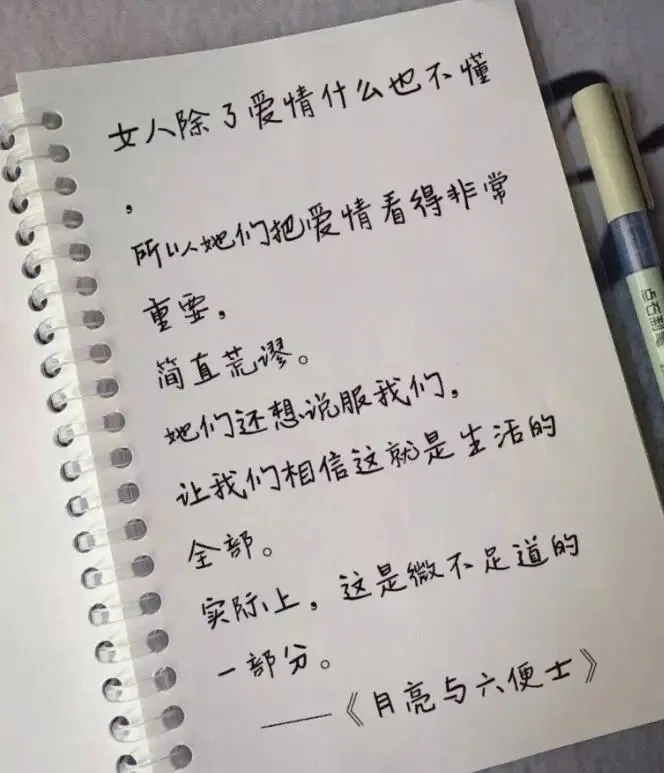 女人除了爱情什么也不懂
，
所以她们把爱情看得非常
重要，
简直荒谬。
她们还想说服我们，
让我们相信这就是生活的
全部。
实际上，这是微不足道的
一部分。
——《月亮与六便士》